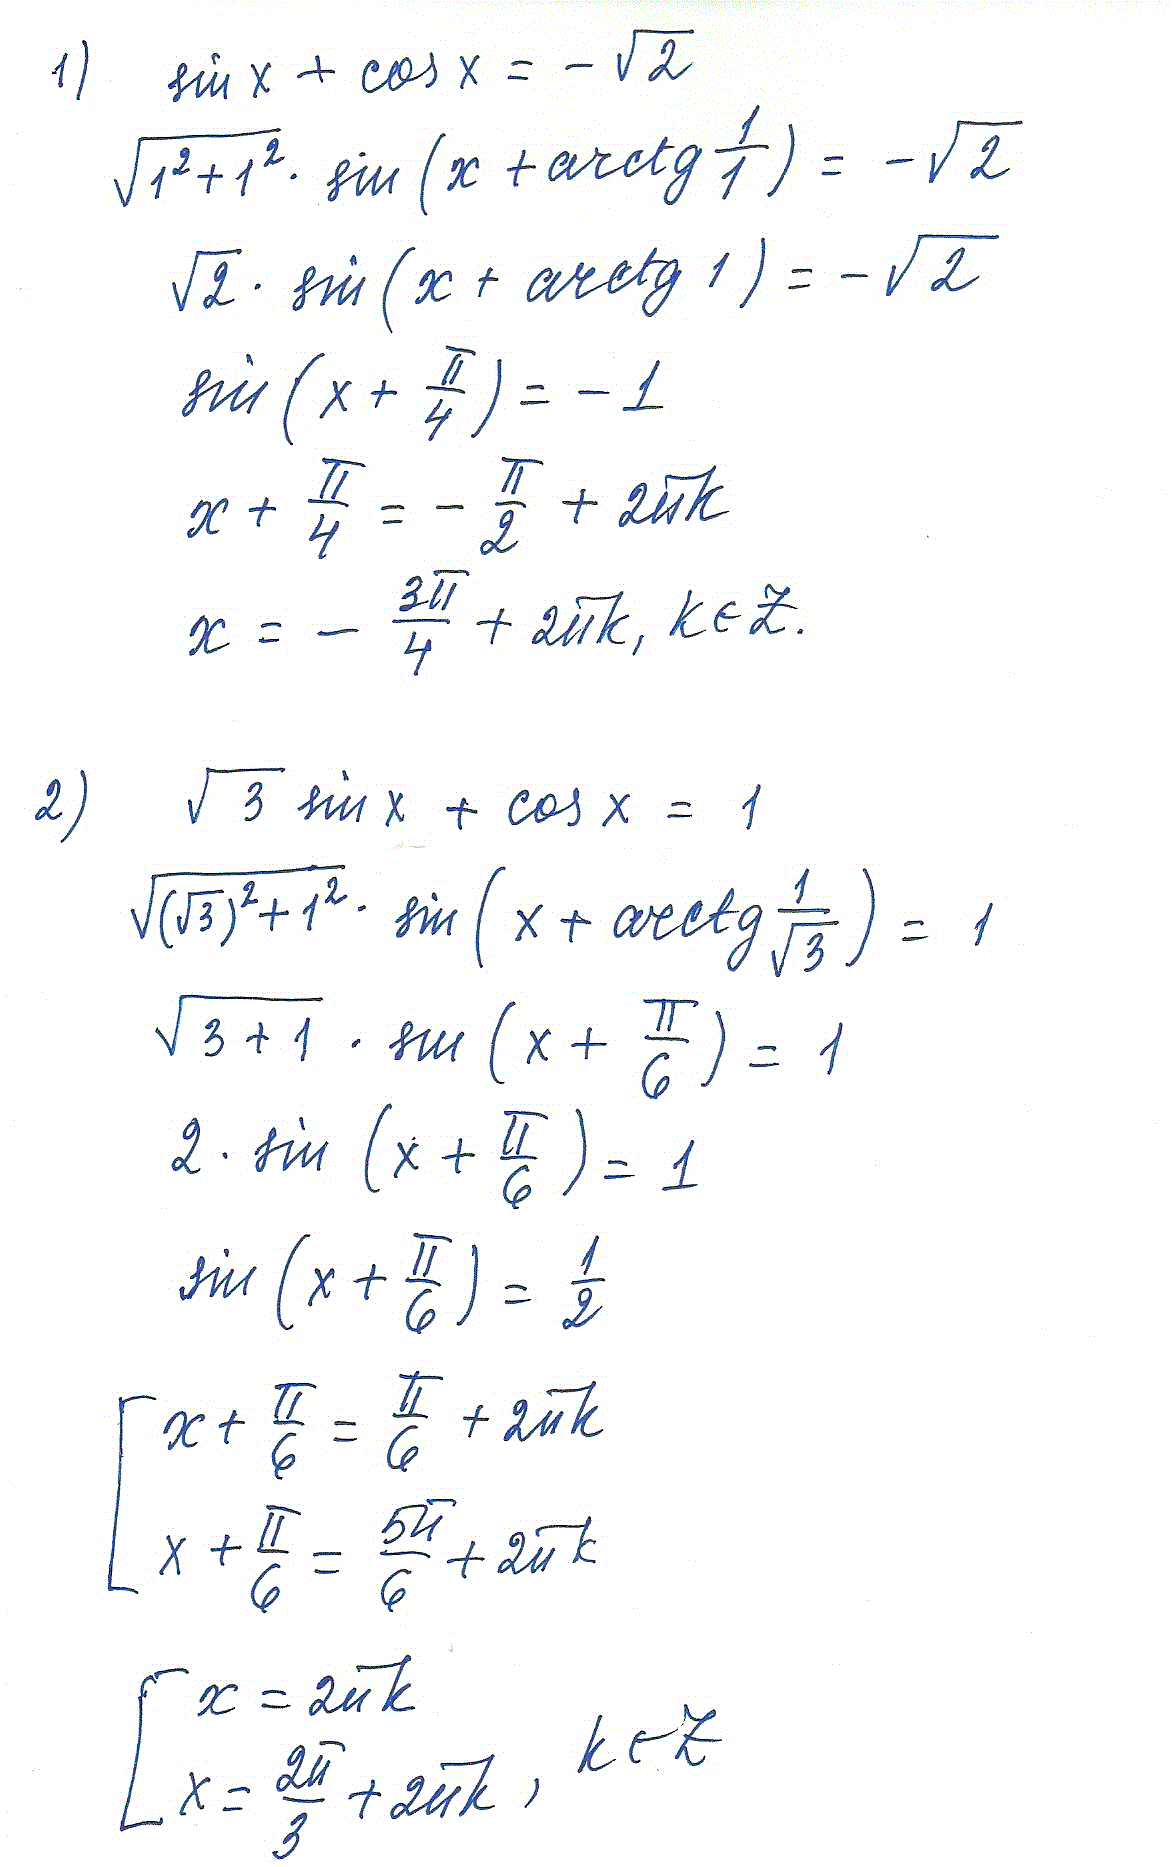 1) sin x + cos x = -√2
√(1²+1²) · sin(x + arctg 1/1) = -√2
√2 · sin(x + arctg 1) = -√2
sin(x + π/4) = -1
x + π/4 = -π/2 + 2πk
x = -3π/4 + 2πk, k∈Z.
2) √3 sin x + cos x = 1
√((√3)²+1²) · sin(x + arctg 1/√3) = 1
√(3+1) · sin(x + π/6) = 1
2 · sin(x + π/6) = 1
sin(x + π/6) = 1/2
[ x + π/6 = π/6 + 2πk
x + π/6 = 5π/6 + 2πk
[ x = 2πk
x = 2π/3 + 2πk, k∈Z